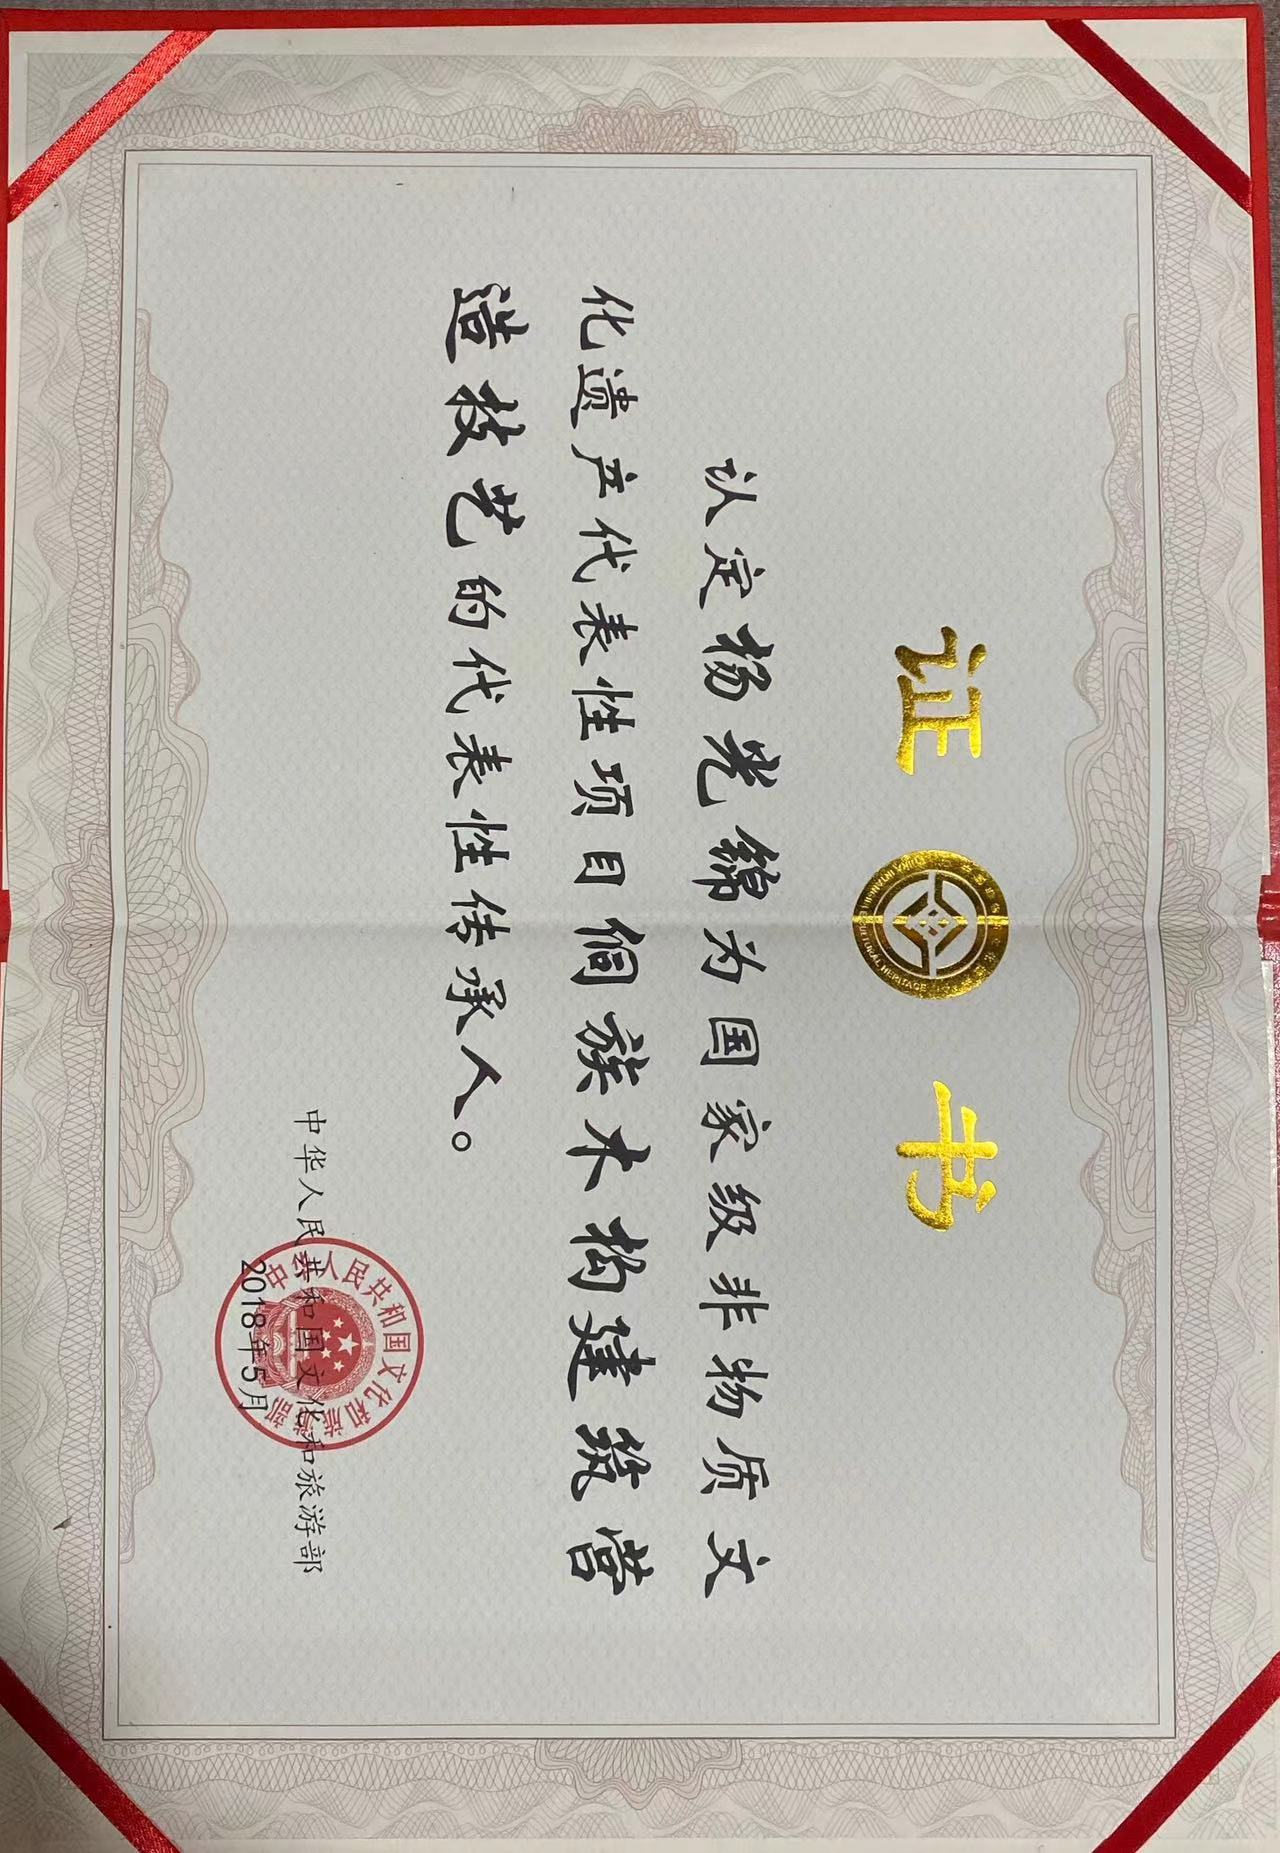 证书
认定杨光锦为国家级非物质文
化遗产代表性项目侗族木构建筑营
造技艺的代表性传承人。
中华人民共和国文化和旅游部
2018年5月
中华人民共和国文化和旅游部
CULTURAL HERITAGE